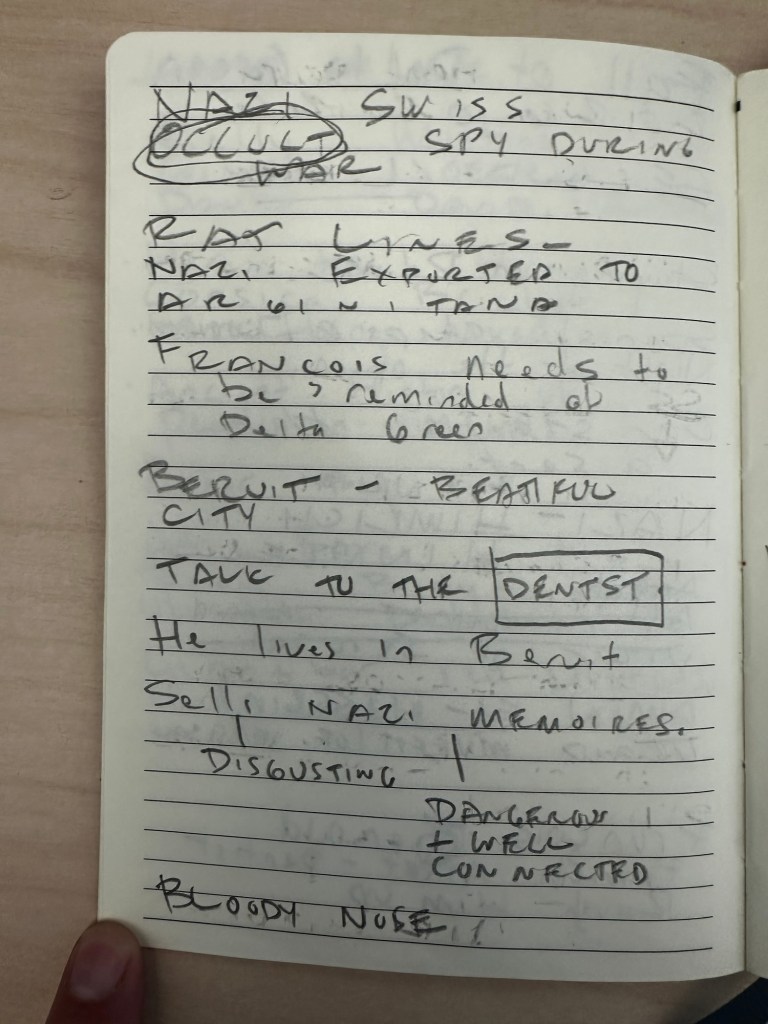 NAZI SWISS
OCCULT SPY DURING
WAR
RAT LINES -
NAZI EXPORTED TO
ARGINITANA
FRANCOIS needs to
be reminded of
Delta Green
BERUIT - BEATIFUL
CITY
TALK TO THE DENTST
He lives in Beruit
Sells NAZI MEMOIRES.
DISGUSTING -
DANGEROUS
+ WELL
CONNECTED
BLOODY NOSE